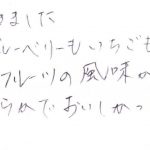 ました
ルーベリーもいちごも
フルーツの風味の
らかでおいしかっ